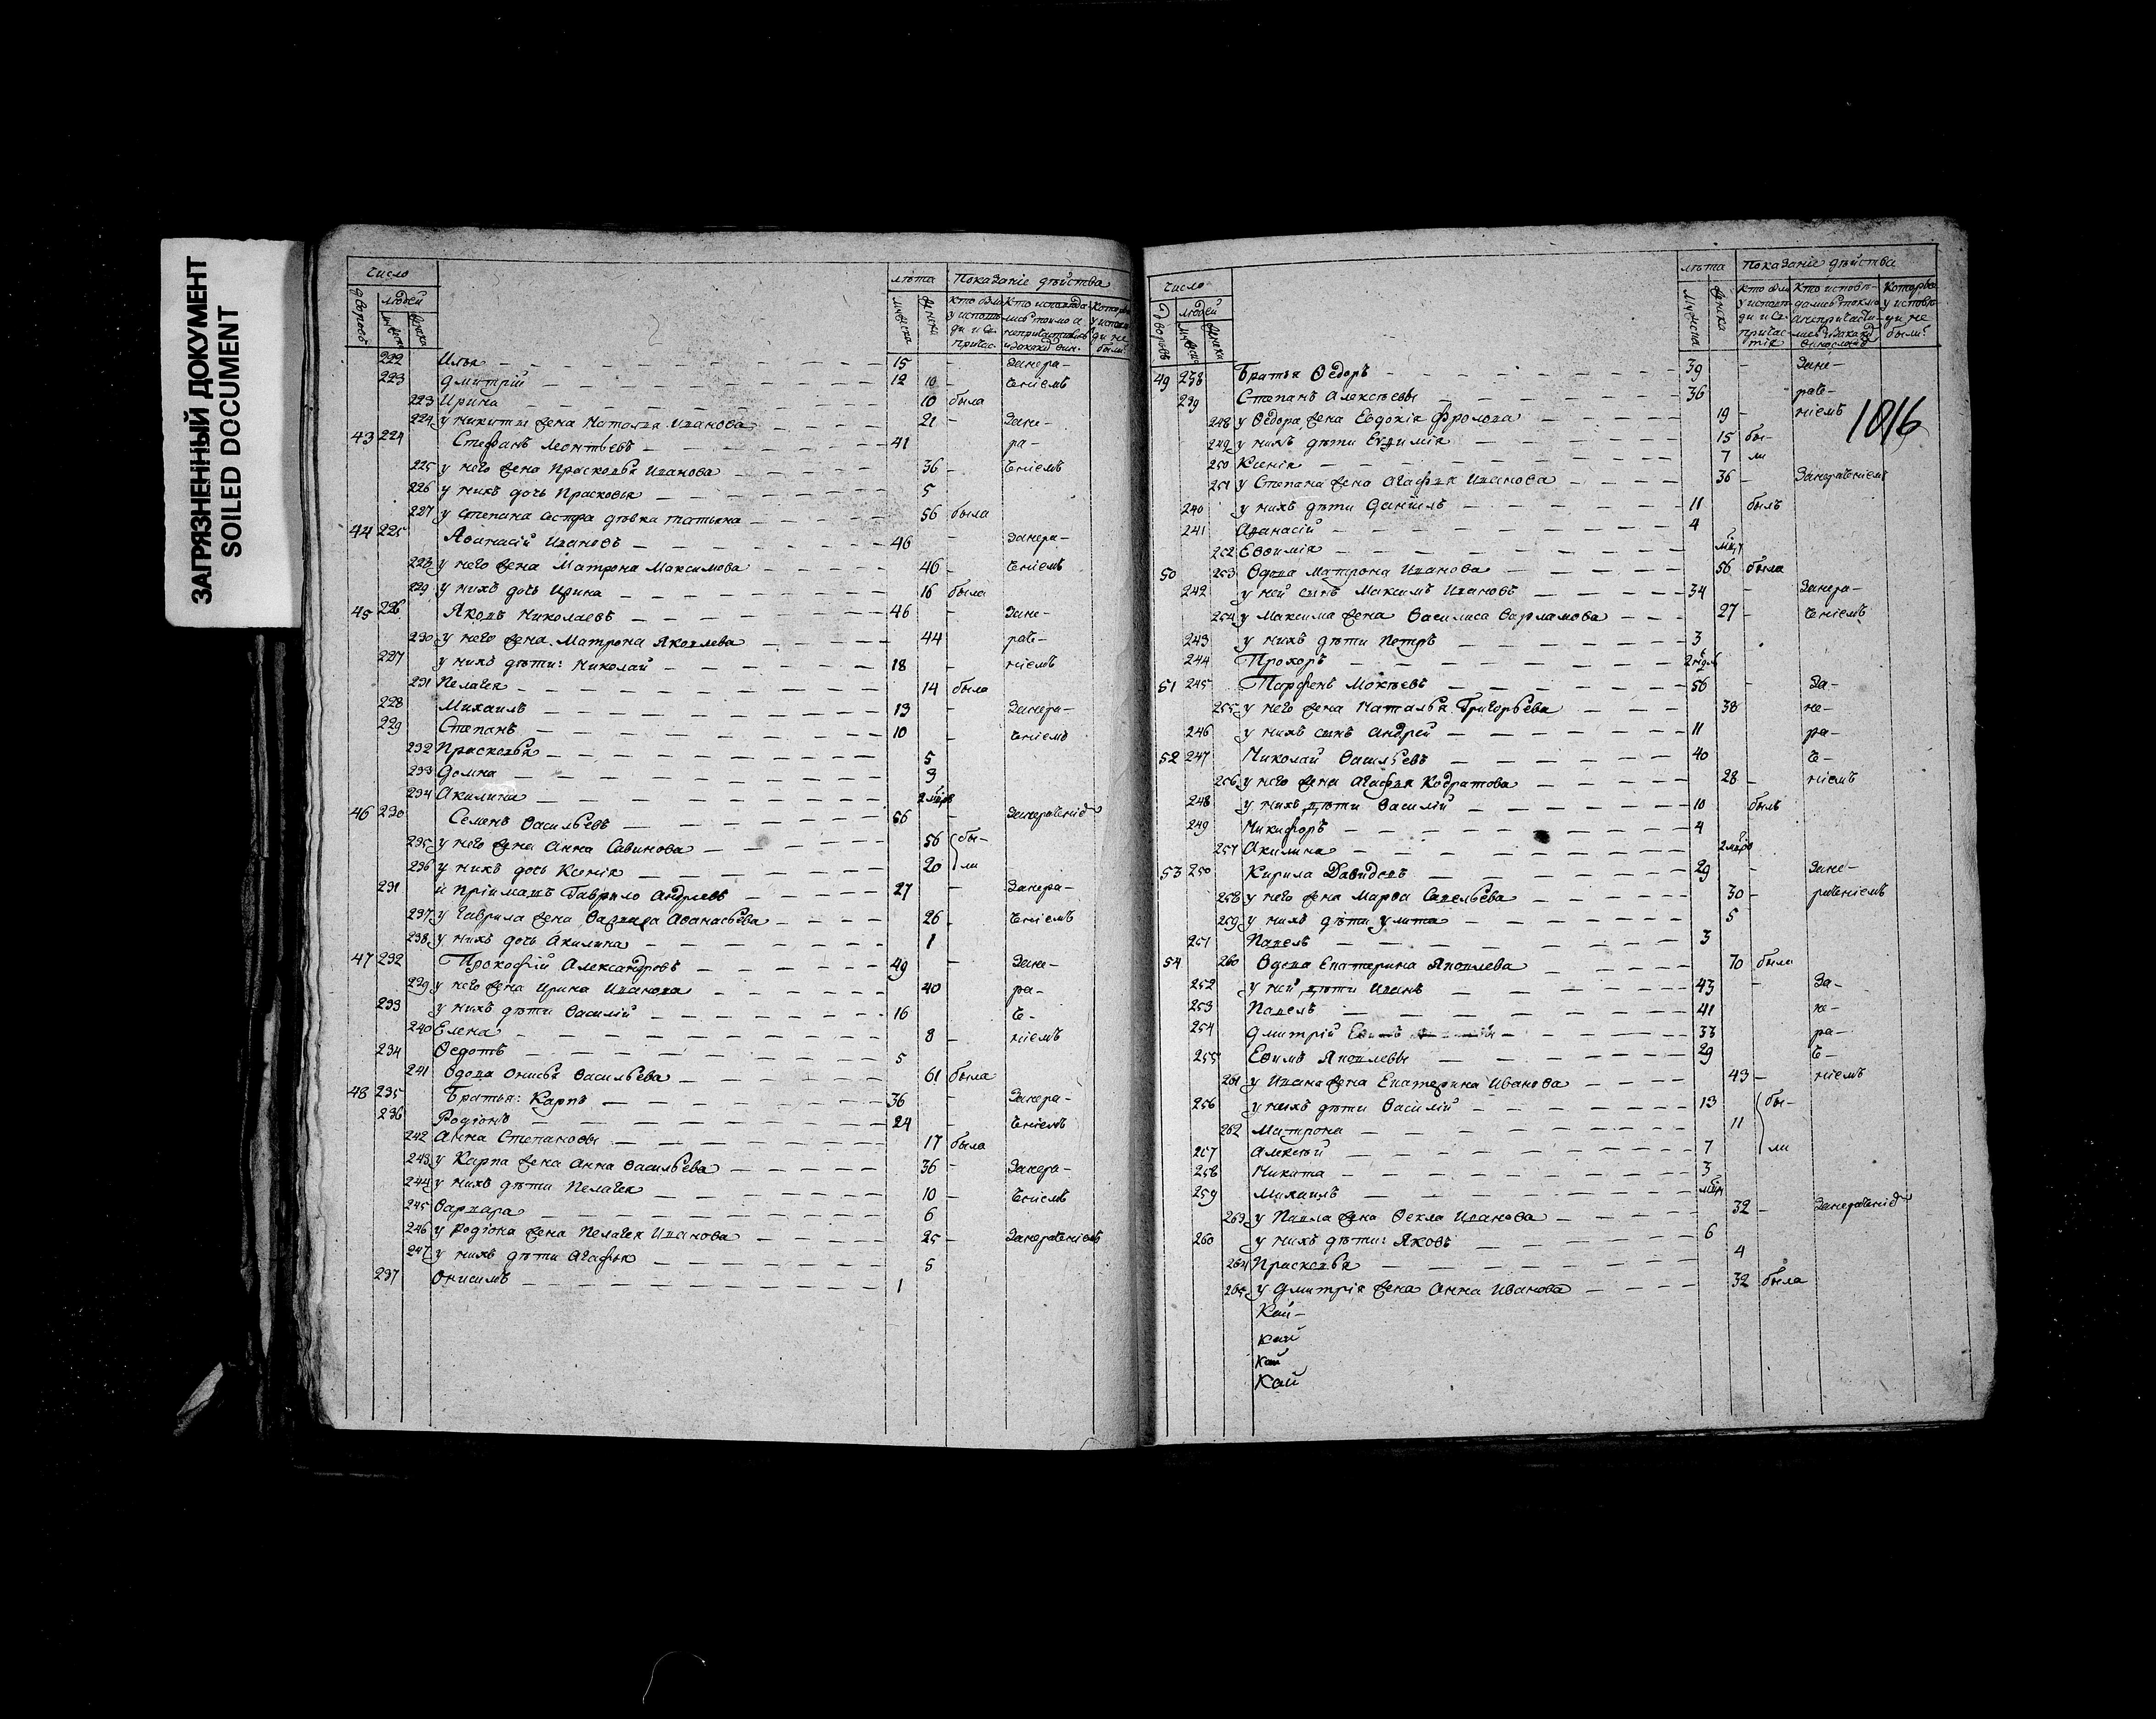 ЗАГРЯЗНЕННЫЙ ДОКУМЕНТ
SOILED DOCUMENT
число лѣта Показаніе дѣйства
дворовъ людей
222 Илья 15 Занера-
223 Дмитрій 12 10 - ченіемъ
223 Ирина 10 была
224 у никиты жена Наталья иванова 21 - Зане-
43 224 Стефанъ Леонтьевъ 41 - ра-
225 у него жена Прасковья Иванова 36 - ченіемъ
226 у нихъ дочь Прасковья 5
227 у степана сестра дѣвка татьяна 56 была
44 225 Аѳанасій Ивановъ 46 - Занера-
228 у него жена Матрона Максимова 46 - ченіемъ
229 у нихъ дочь Ирина 16 была
45 226 Яковъ Николаевъ 46 - Зане-
230 у него жена Матрона Яковлева 44 - раче-
227 у нихъ дѣти: Николай 18 - ніемъ
231 Пелагея 14 была
228 Михаилъ 13 - Занера-
229 Степанъ 10 - ченіемъ
232 Прасковья 5
233 Домна 3
234 Акилина 2 мѣся
46 230 Семенъ Васильевъ 66 - Занераченіе
235 у него жена Анна Савинова 56 бы-
236 у нихъ дочь Ксенія 20 ли
231 и пріимашъ Гаврило Андреевъ 27 - Занера-
237 у Гаврила жена Варвара Аѳанасьева 26 - ченіемъ
238 у нихъ дочь Акилина 1
47 232 Прокофій Александровъ 49 - Зане-
239 у него жена Ирина Иванова 40 - ра-
233 у нихъ дѣти Василій 16 - че-
240 Елена 8 - ніемъ
234 Ѳедотъ 5
241 Вдова Онисья Васильева 61 была
48 235 Братья: Карпъ 36 - Занера-
236 Родіонъ 24 - ченіемъ
242 Анна Степановы 17 была
243 у Карпа жена Анна Васильева 36 - Занера-
244 у нихъ дѣти Пелагея 10 - ченіемъ
245 Варвара 6
246 у Родіона жена Пелагея Иванова 25 - Занераченіемъ
247 у нихъ дѣти Агафья 5
237 Онисимъ 1
число лѣта Показаніе дѣйства
дворовъ людей
49 238 Братья Ѳедоръ 39 - Зане-
239 Степанъ Алексѣевы 36 - раче-
248 у Ѳедора жена Евдокія Фролова 19 - ніемъ
1016
249 у нихъ дѣти Евѳимія 15 бы-
250 Ксенія 7 ли
251 у Степана жена Агафья Иванова 36 - Занераченіемъ
240 у нихъ дѣти Даніилъ 11 былъ
241 Аѳанасій 4
252 Евѳимія
50 253 Вдова Матрона Иванова 56 была
242 у ней сынъ Максимъ Ивановъ 34 - Занера-
254 у Максима жена Василиса Варламова 27 - ченіемъ
243 у нихъ дѣти Петръ 3
244 Прохоръ
51 245 Парфенъ Мокѣевъ 56 - За-
255 у него жена Наталья Григорьева 38 не-
246 у нихъ сынъ Андрей 11 ра-
52 247 Николай Васильевъ 40 че-
256 у него жена Агафья Кодратова 28 - ніемъ
248 у нихъ дѣти Василій 10 былъ
249 Никифоръ 4
257 Акилина 2 мѣся
53 250 Кирила Давидовъ 29 - Зане-
258 у него жена Марѳа Савельева 30 - раченіемъ
259 у нихъ дѣти Улита 5
251 Павелъ 3
54 260 Вдова Екатерина Яковлева 70 была
252 у ней дѣти Иванъ 43 - За-
253 Павелъ 41 не-
254 Дмитрій 33 ра-
255 Ефимъ Яковлевы 29 че-
261 у Ивана жена Екатерина Иванова 43 - ніемъ
256 у нихъ дѣти Василій 13 бы-
262 Матрона 11
257 Алексѣй 7 ли
258 Никита 3
259 Михаилъ
263 у Павла жена Ѳекла Иванова 32 - Занераченіе
260 у нихъ дѣти: Яковъ 6
264 Прасковья 4
265 у Дмитрія жена Анна Иванова 32 была
Кай-
Кай
Кай
Кай